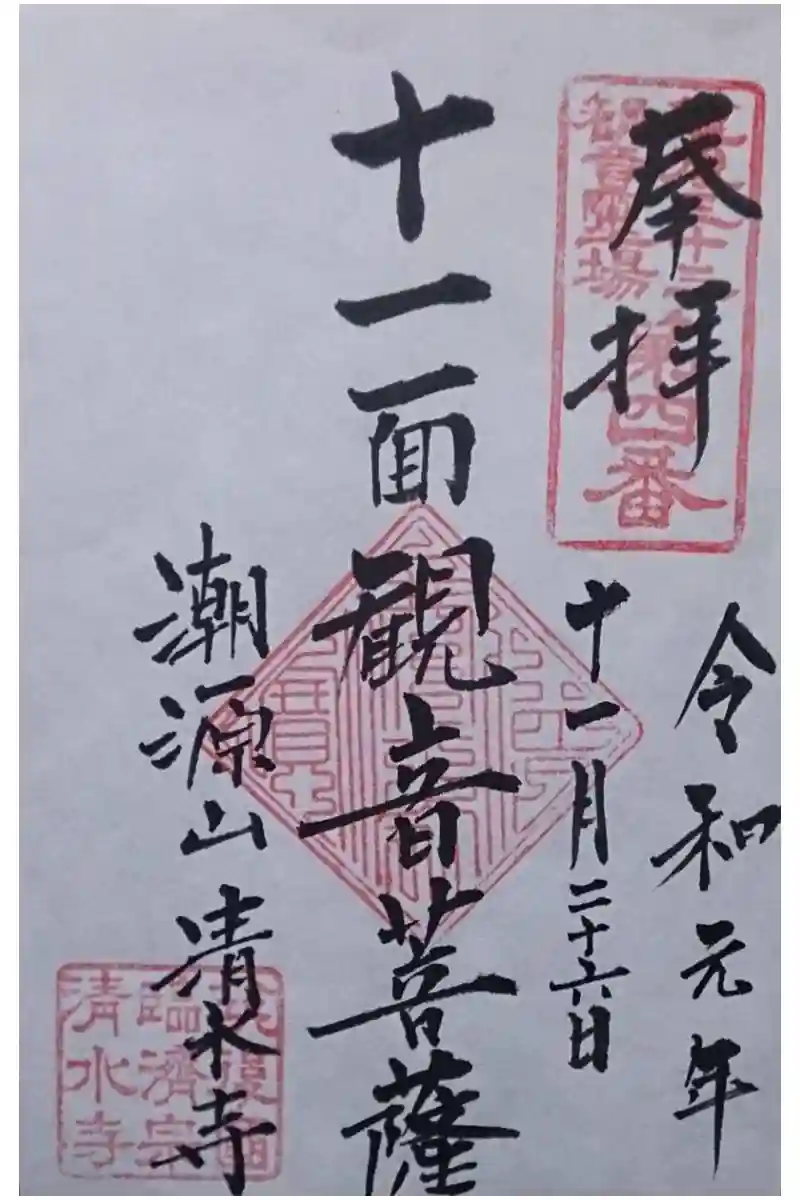 奉拝
三十三
観音霊場
第四番
令和元年
十一月二十六日
十一面観音菩薩
潮源山 清水寺
臨濟宗
清水寺